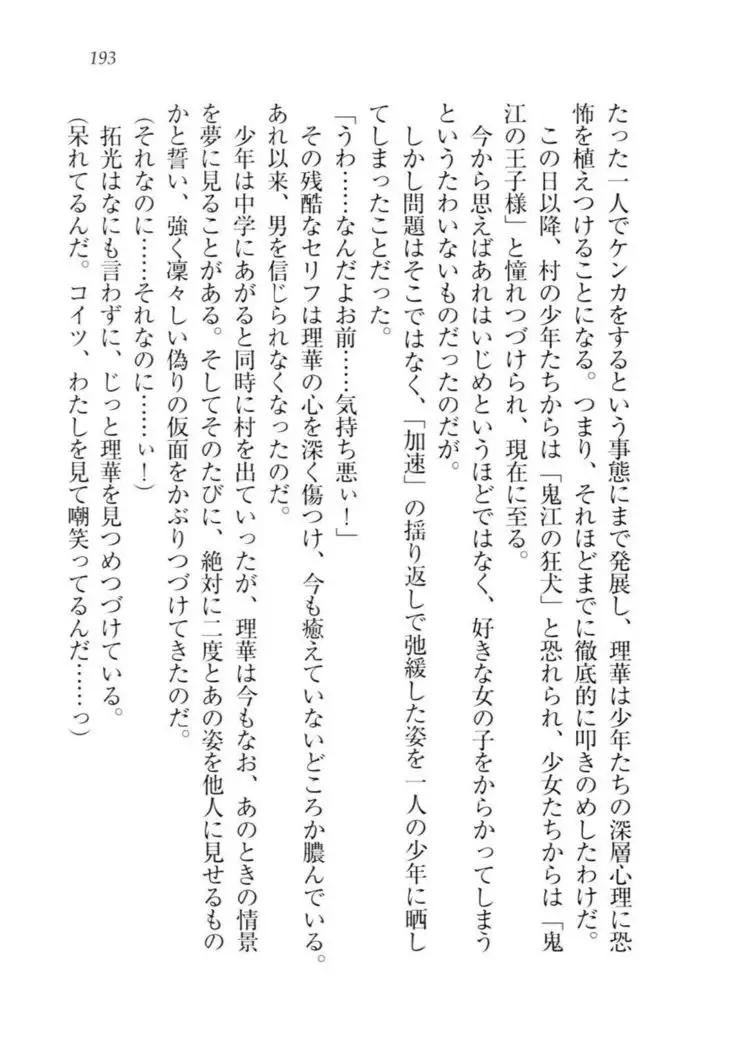 193
たった一人でケンカをするという事態にまで発展し、理華は少年たちの深層心理に恐
怖を植えつけることになる。つまり、それほどまでに徹底的に叩きのめしたわけだ。
この日以降、村の少年たちからは「鬼江の狂犬」と恐れられ、少女たちからは「鬼
江の王子様」と憧れつづけられ、現在に至る。
今から思えばあれはいじめというほどではなく、好きな女の子をからかってしまう
というたわいないものだったのだが。
しかし問題はそこではなく、「加速」の揺り返しで弛緩した姿を一人の少年に晒し
てしまったことだった。
「うわ……なんだよお前……気持ち悪ぃ！」
その残酷なセリフは理華の心を深く傷つけ、今も癒えていないどころか膿んでいる。
あれ以来、男を信じられなくなったのだ。
少年は中学にあがると同時に村を出ていったが、理華は今もなお、あのときの情景
を夢に見ることがある。そしてそのたびに、絶対に二度とあの姿を他人に見せるもの
かと誓い、強く凛々しい偽りの仮面をかぶりつづけてきたのだ。
（それなのに……それなのに……ぃ！）
拓光はなにも言わずに、じっと理華を見つめつづけている。
（呆れてるんだ。コイツ、わたしを見て嘲笑ってるんだ……っ）